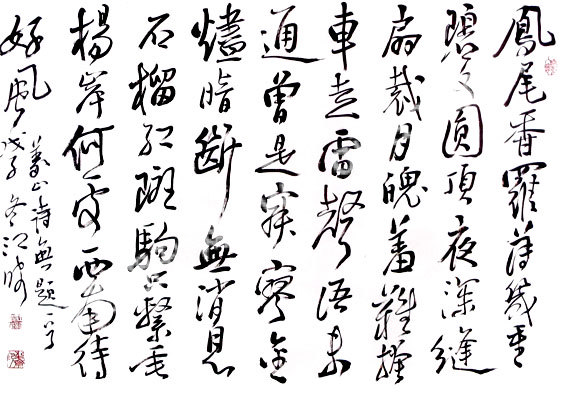 鳳尾香羅薄幾重
碧文圓頂夜深縫
扇裁月魄羞難掩
車走雷聲語未
通曾是寂寥金
燼暗斷無消息
石榴紅斑騅只繫垂
楊岸何處西南待
好風
義山詩無題一首
戊子冬江